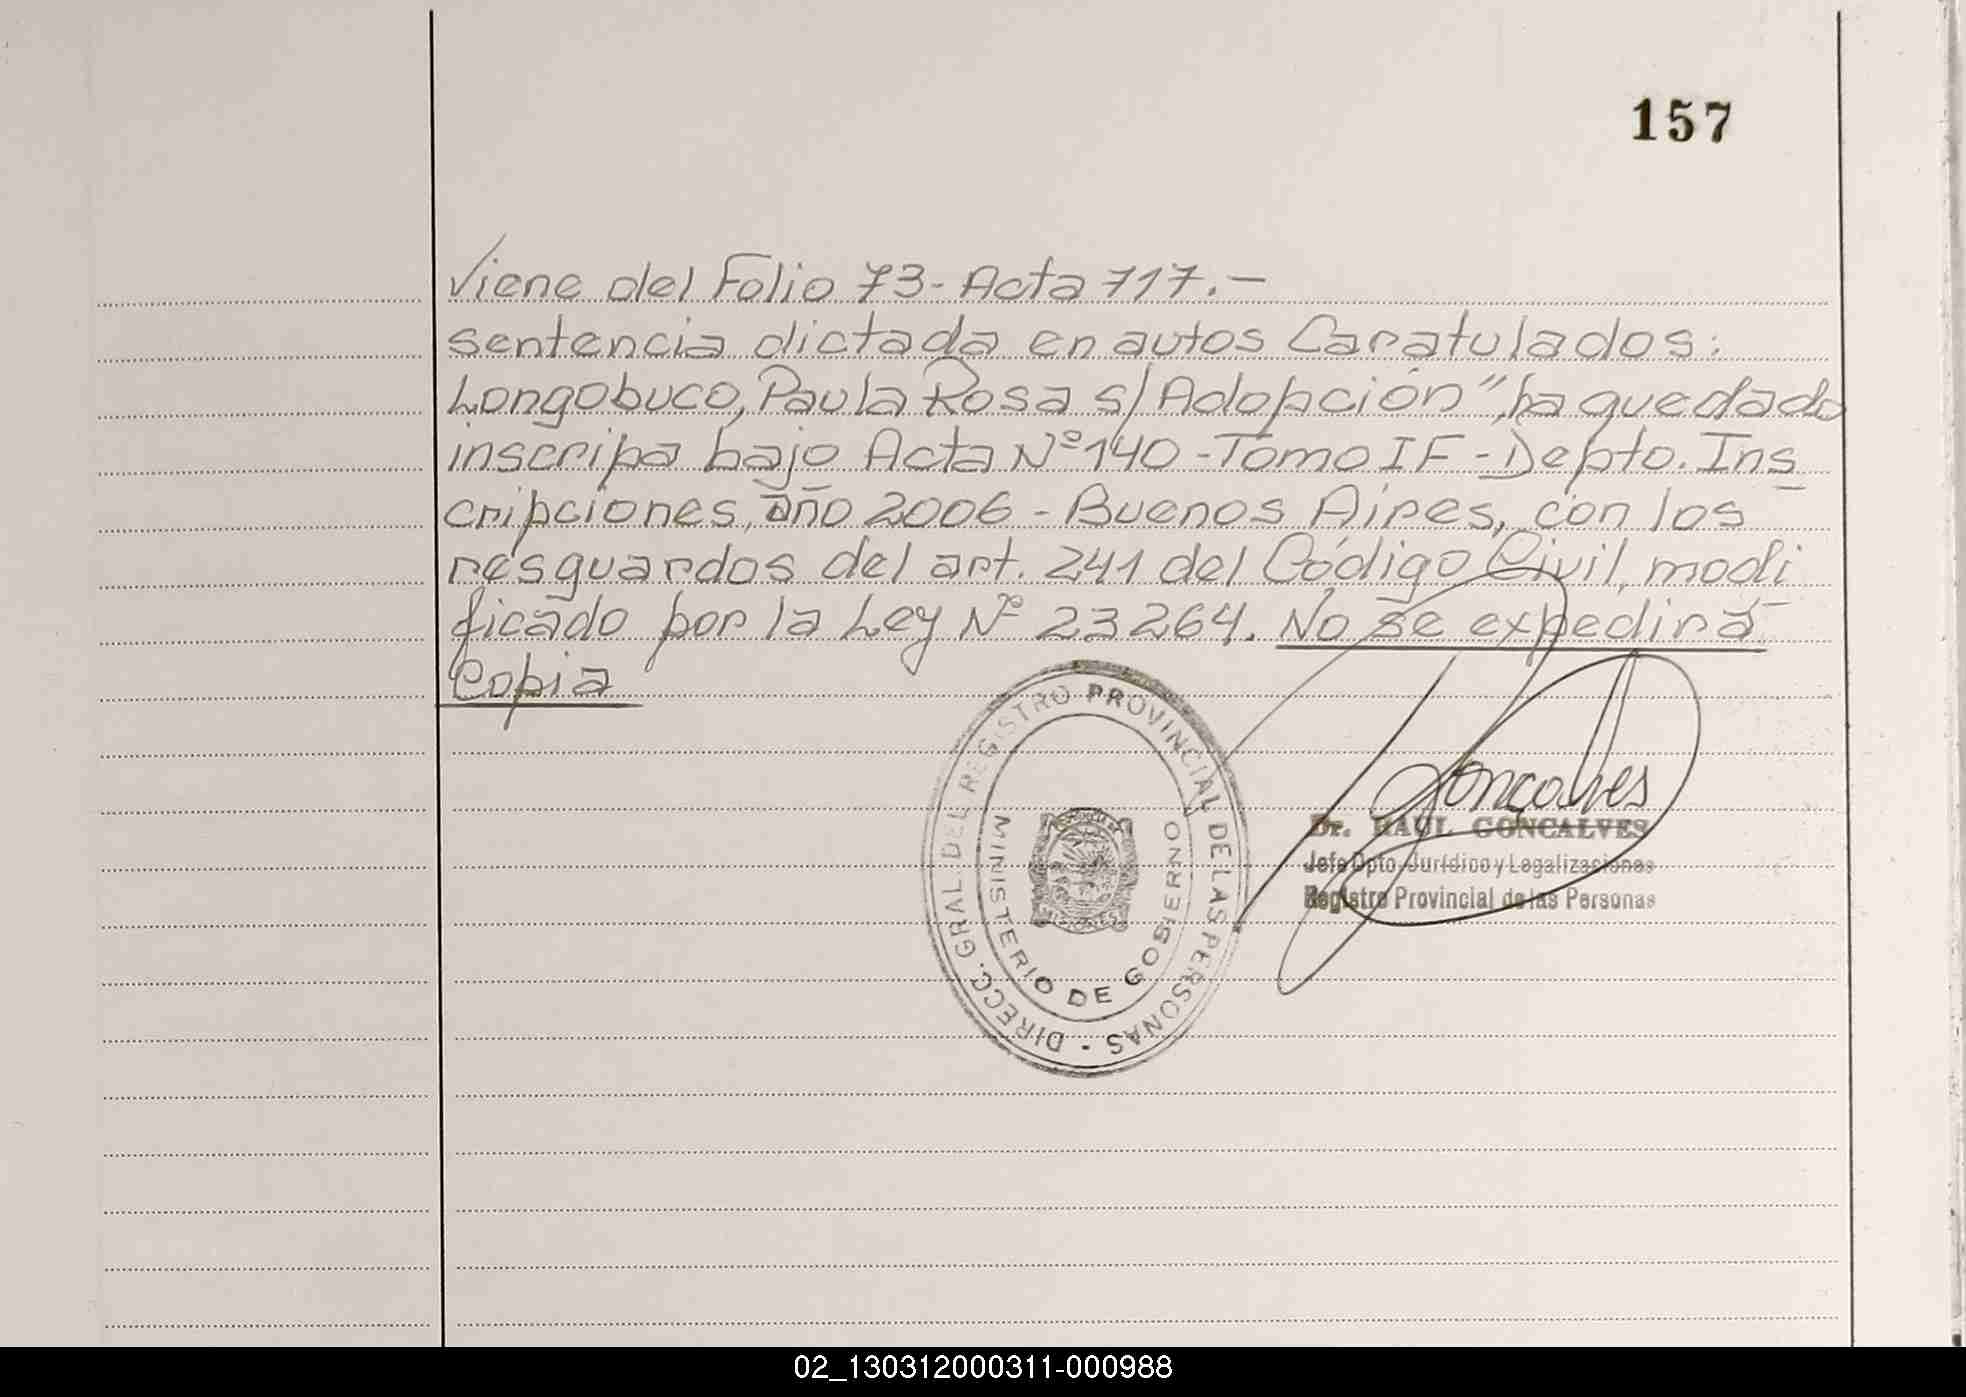 157
Viene del Folio 73- Acta 717.-
sentencia dictada en autos Caratulados:
Longobuco, Paula Rosa s/ Adopción", ha quedado
inscripa bajo Acta Nº 140 - Tomo IF - Depto. Ins
cripciones, año 2006 - Buenos Aires, con los
resguardos del art. 241 del Código Civil, modi
ficado por la Ley Nº 23264. No se expedirá
Copia
DIRECC. GRAL. DEL REGISTRO PROVINCIAL DE LAS PERSONAS -
MINISTERIO DE GOBIERNO
Goncalves
Dr. RAUL GONCALVES
Jefe Dpto. Jurídico y Legalizaciones
Registro Provincial de las Personas
02_130312000311-000988